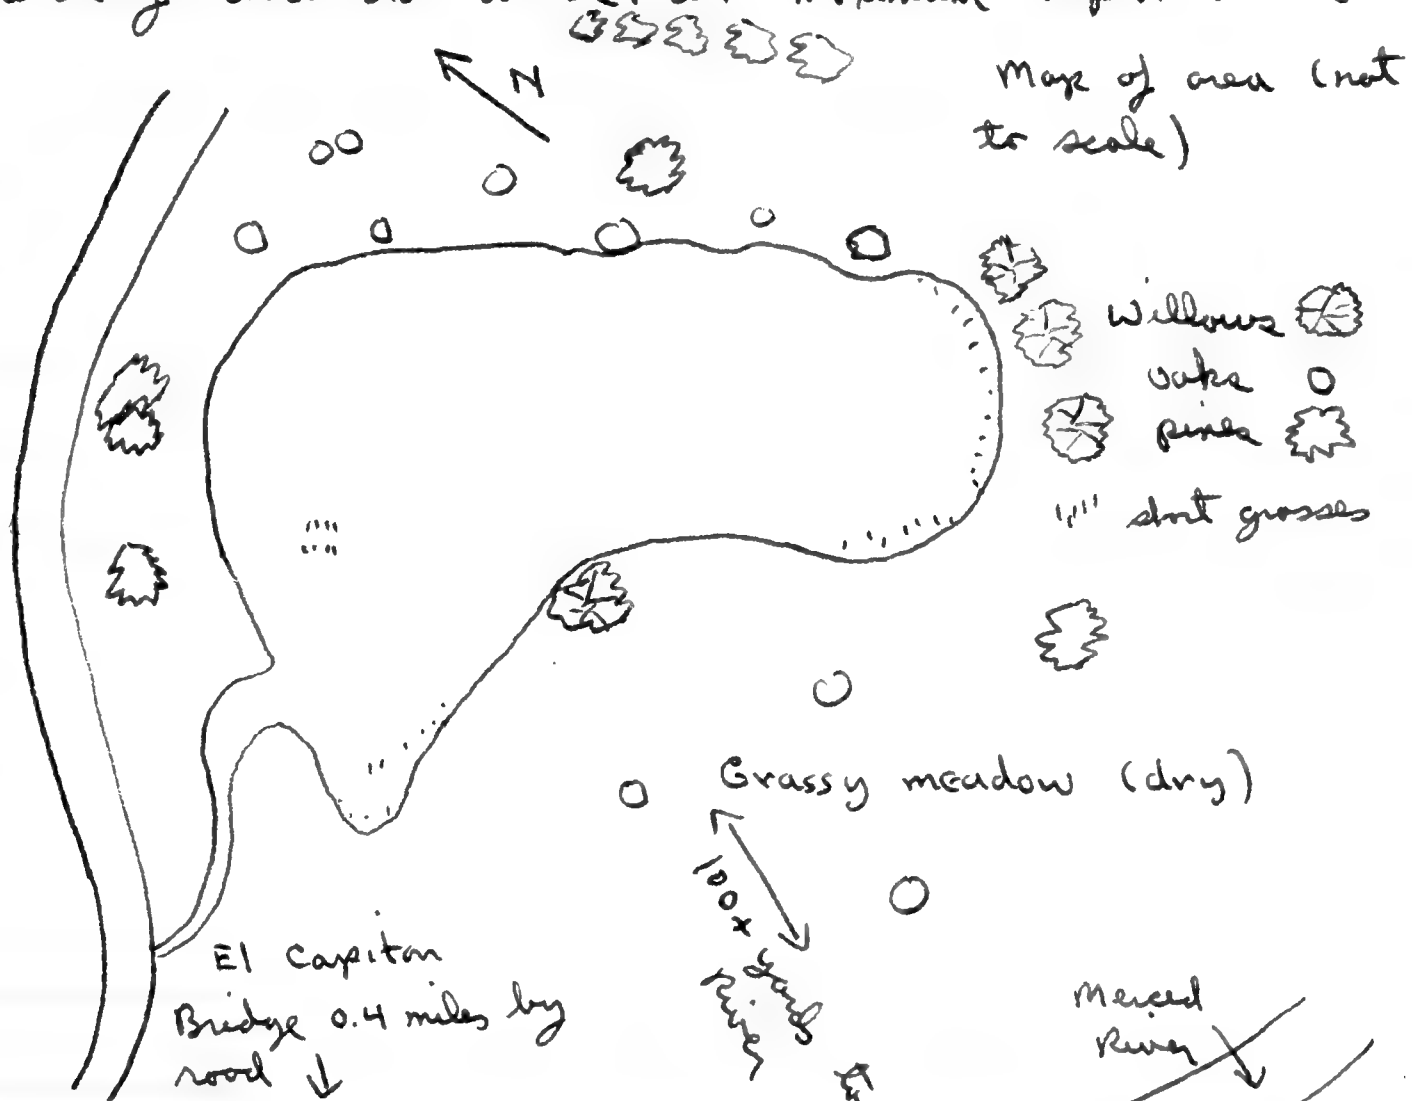 N
Map of area (not
to scale)
Willows
oaks
pines
short grasses
Grassy meadow (dry)
100x yards
River
El Capitan
Bridge 0.4 miles by
road
Merced
River